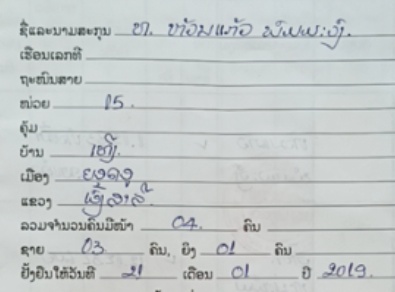 ຊື່ແລະນາມສະກຸນ ທ. ຫອມແກ້ວ
ເຮືອນເລກທີ
ຖະໜົນສາຍ
ໜ່ວຍ 15.
ຄຸ້ມ
ບ້ານ
ເມືອງ
ແຂວງ ຜົ້ງສາລີ
ລວມຈຳນວນຄົນມີໜ້າ 04. ຄົນ
ຊາຍ 03 ຄົນ, ຍິງ 01 ຄົນ
ຢັ້ງຢືນໃຫ້ວັນທີ 21 ເດືອນ 01 ປີ 2019.